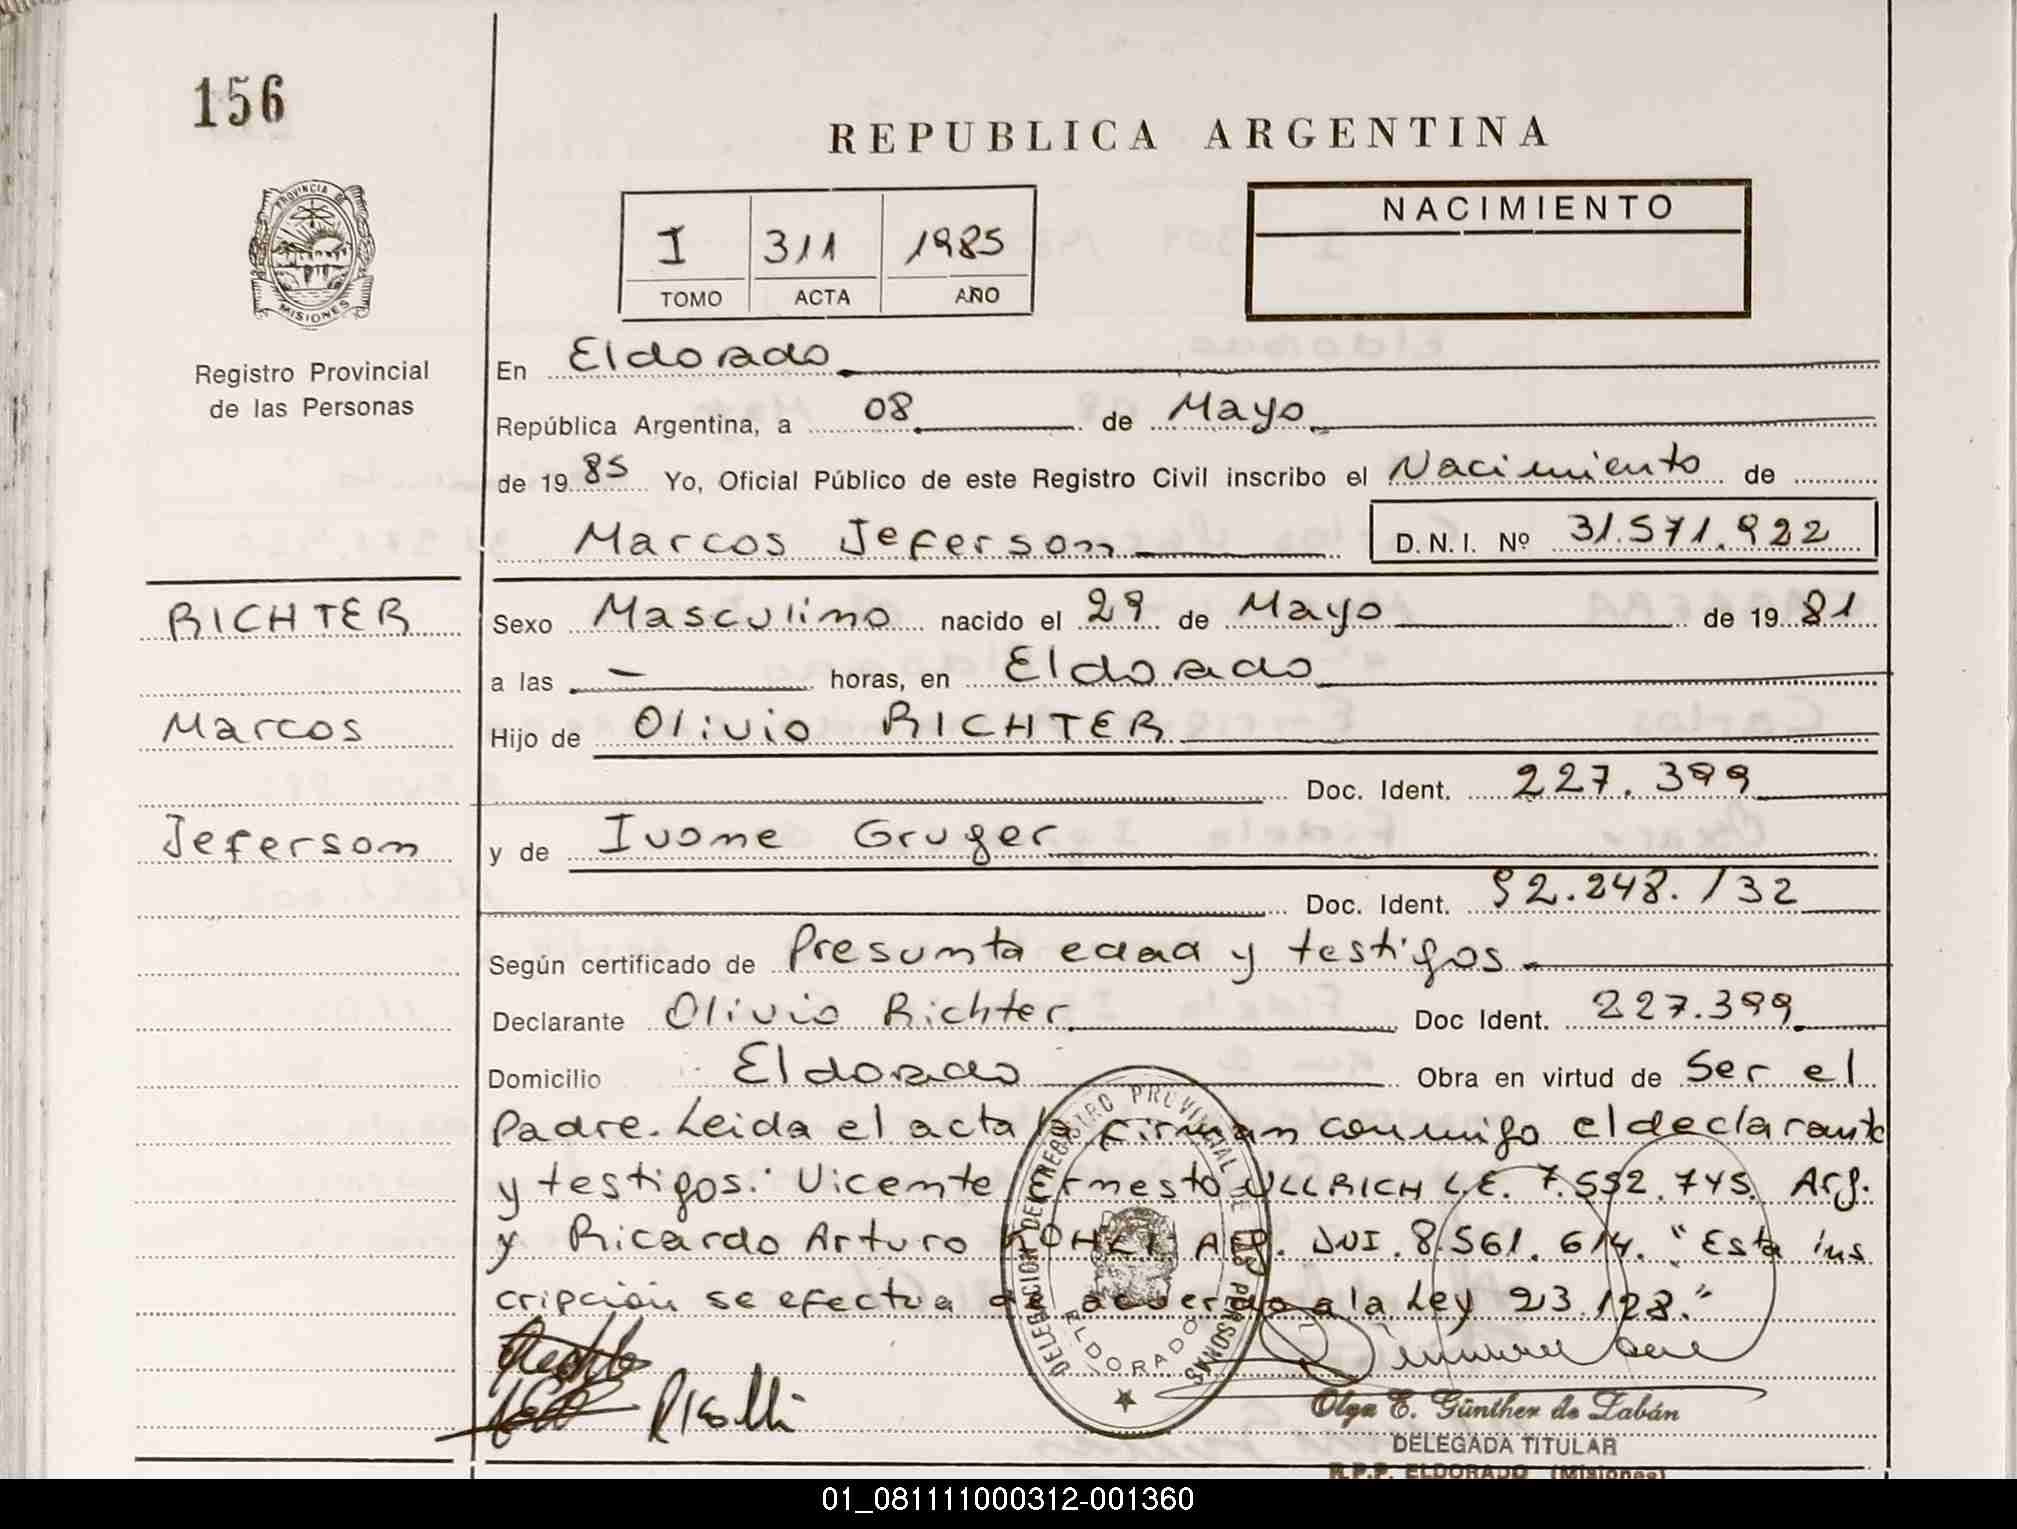 156
REPUBLICA ARGENTINA
PROVINCIA DE MISIONES
I 311 1985
TOMO ACTA AÑO
NACIMIENTO
Registro Provincial
de las Personas
En Eldorado
República Argentina, a 08 de Mayo
de 1985 Yo, Oficial Público de este Registro Civil inscribo el Nacimiento de
Marcos Jeferson D.N.I. Nº 31.571.922
RICHTER
Marcos
Jeferson
Sexo Masculino nacido el 29 de Mayo de 1981
a las — horas, en Eldorado
Hijo de Olivio RICHTER
Doc. Ident. 227.399
y de Ivone Gruger
Doc. Ident. 92.248.132
Según certificado de Presunta edad y testigos
Declarante Olivio Richter Doc Ident. 227.399
Domicilio Eldorado Obra en virtud de Ser el
Padre. Leida el acta la firman conmigo el declarante
y testigos: Vicente Ernesto ULLRICH L.E. 7.552.745. Arg.
y Ricardo Arturo KOHLI ARG. DNI. 8.561.614. "Esta ins
cripción se efectua de acuerdo a la Ley 23.128."
DELEGACION DEL REGISTRO PROVINCIAL DE LAS PERSONAS
ELDORADO
Olga E. Günther de Zabán
DELEGADA TITULAR
R.P.P. ELDORADO (Misiones)
01_081111000312-001360